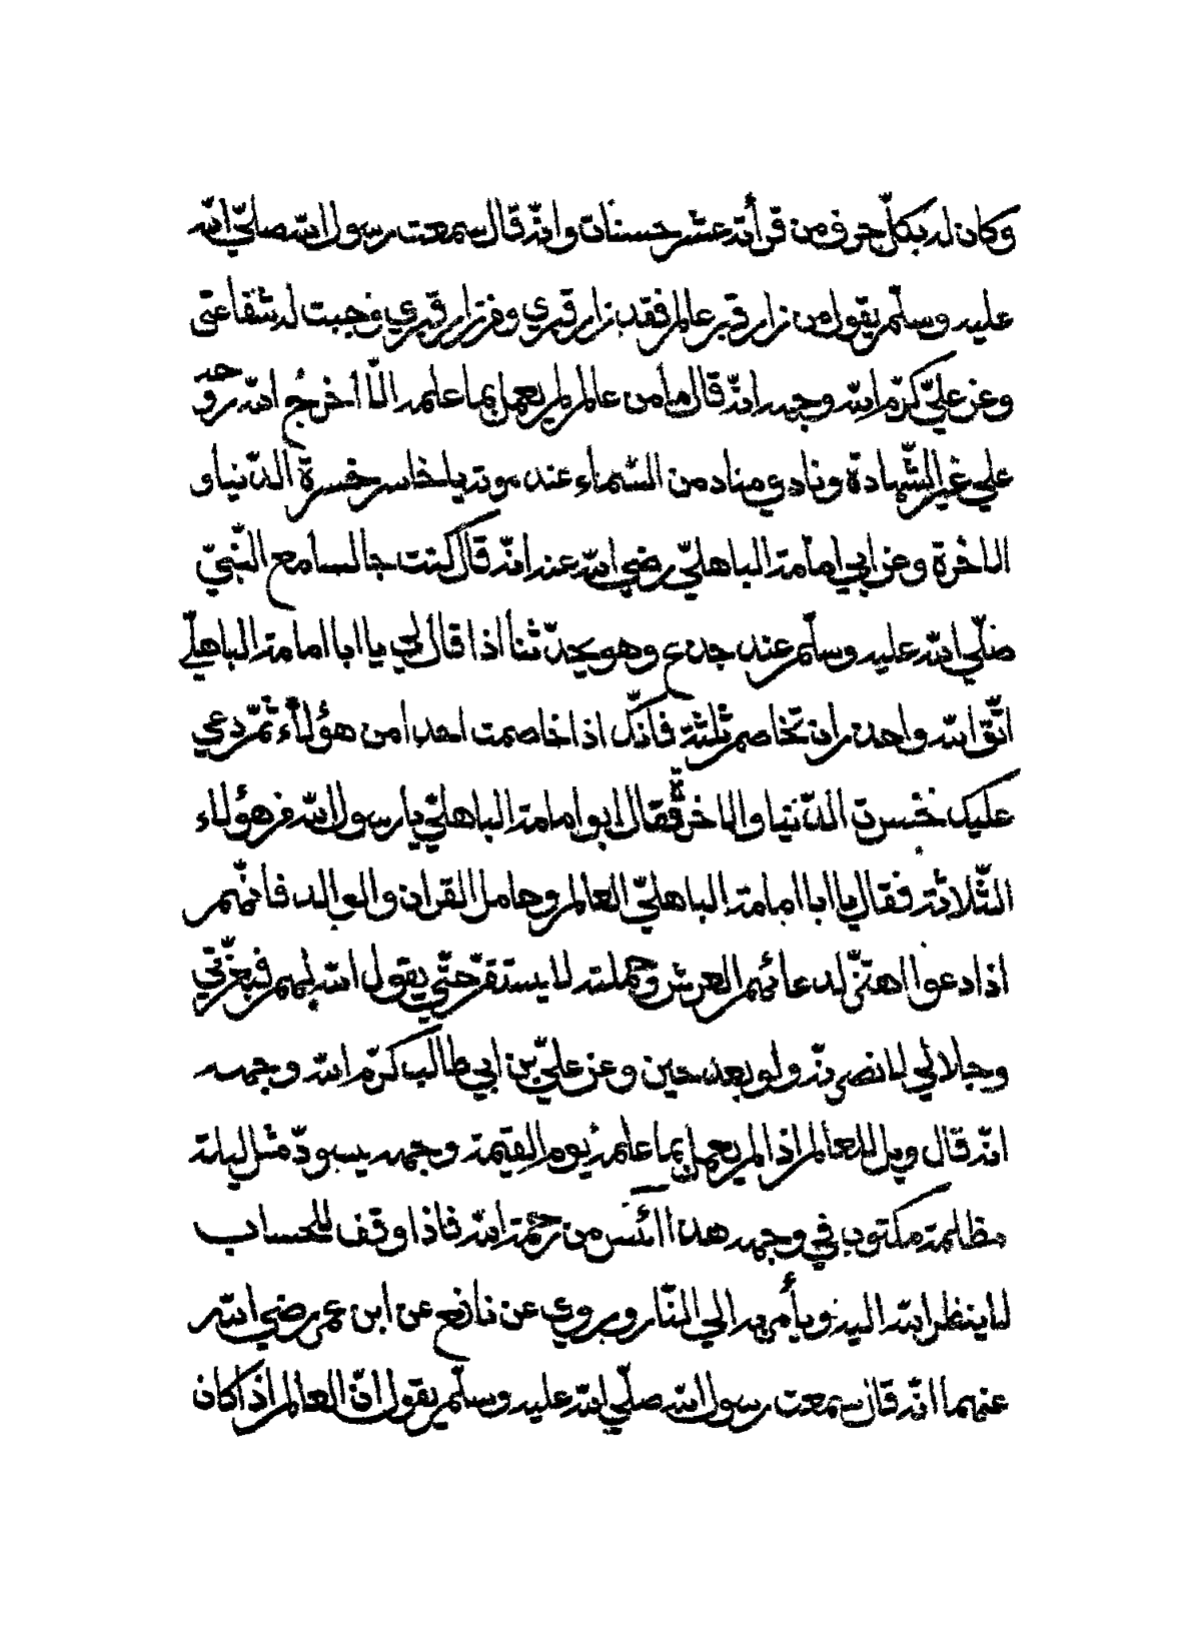 وكان له بكلّ حرف من قرأته عشر حسنات وانّه قال سمعت رسول الله صلّي الله
عليه وسلّم يقول من زار قبر عالم فقد زار قبري ومن زار قبري وجبت له شفاعتي
وعن عليّ كرّم الله وجهه انّه قال ما من عالم لم يعمل بما علمه الّا أخرجُ الله روحه
علي غير الشّهادة ونادي مناد من السّماء عند موته يا خاسر خسرة الدّنيا و
الاخرة وعن ابي امامة الباهليّ رضي الله عنه انّه قال كنت جالسا مع النّبيّ
صلّي الله عليه وسلّم عند جدع وهو يحدّثنا اذا قال لي يا ابا امامة الباهليّ
اتّق الله واحذر ان تخاصم ثلثة فانّك اذا خاصمت احدا من هؤلاء ثمّ دعي
عليك خسرت الدّنيا والاخرة فقال ابو امامة الباهليّ يا رسول الله من هؤلاء
الثّلاثة فقال يا ابا امامة الباهليّ العالم وحامل القران والوالد فانّهم
اذا دعوا اهتزّ لدعائهم العرش وحملته لا يستقرّ حتّي يقول الله لهم فبعزّتي
وجلالي لانصرنّه ولو بعد حين وعن عليّ بن ابي طالب كرّم الله وجهه
انّه قال ويل للعالم اذا لم يعمل بما علمه يوم القيمة وجهه يسودّ مثل ليلة
مظلمة مكتوب في وجهه هذا ائس من رحمة الله فاذا وقف للحساب
لا ينظر الله اليه ويأمر به الي النّار وروي عن نافع عن ابن عمر رضي الله
عنهما انّه قال سمعت رسول الله صلّي الله عليه وسلّم يقول انّ العالم اذا كان